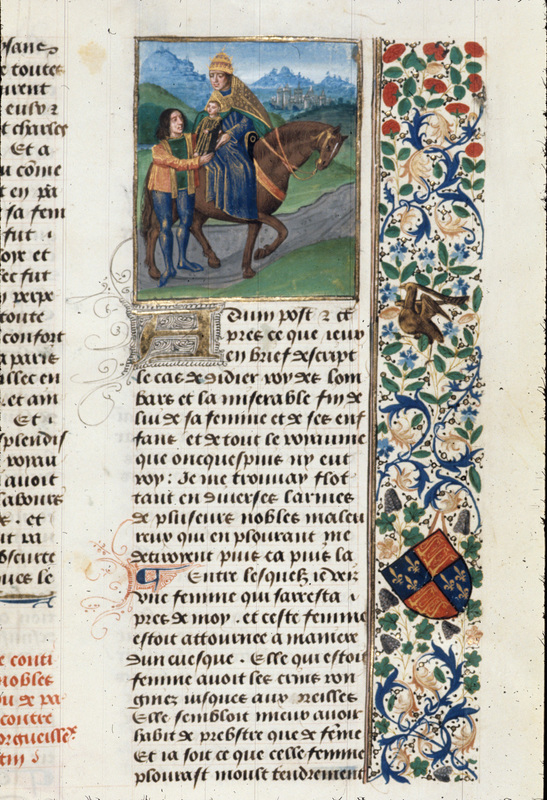 toutes
urent
charles
Et a
u côme
sa fem
fut
et
fut
toute
confort
a paris
et am
Et
splendis
avoit
labours
et
obscure
le
conti
nobles
contre
orgueillex
Dum post & cȩ
pres ce que ieuȝ
en brief descript
le cas de didier roy des lom
bars et la miserable fin de
lui de sa femme et de ses enf
fans et de tout le royaume
que oncques puis ny eut
roy : Je me trouuay flot
tant en diuerses larmes
de plusieurs nobles maleu
reux qui en plourant me
detiroyent puis ca puis la
Entre lesquelz ie veiz
vne femme qui sarresta
pres de moy . et ceste femme
estoit attournee a maniere
dun euesque . Elle qui estoit
femme auoit les crins ron
gnez iusques aux oreilles
Elle sembloit mieux auoir
habit de prebstre que de fême
Et ia soit ce que celle femme
plourast moult tendrement